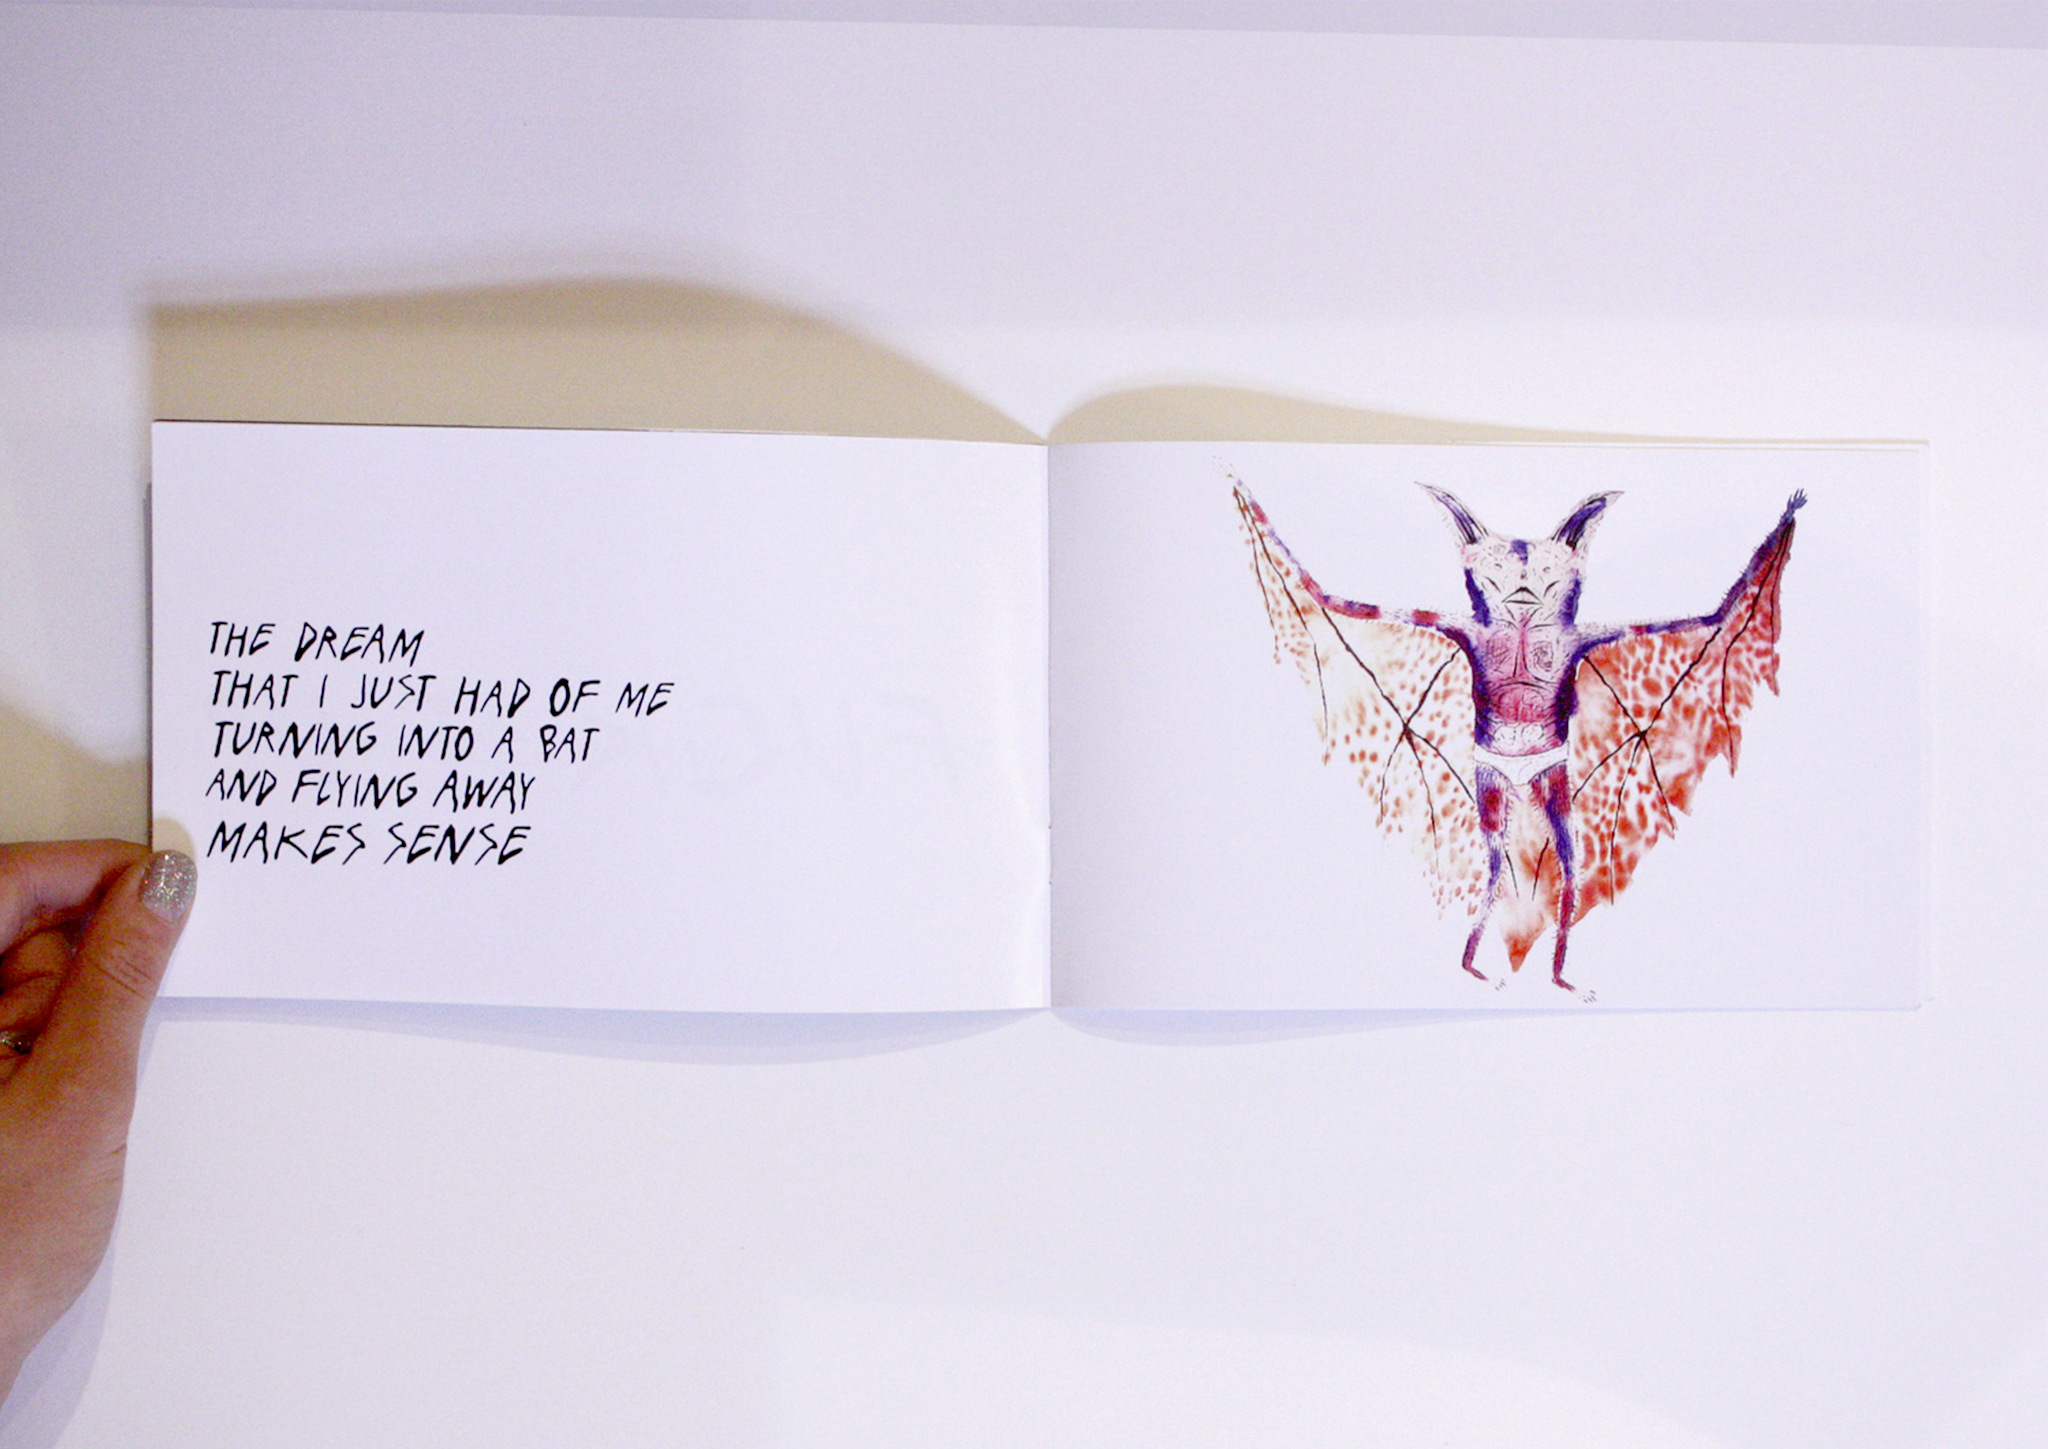 THE DREAM
THAT I JUST HAD OF ME
TURNING INTO A BAT
AND FLYING AWAY
MAKES SENSE